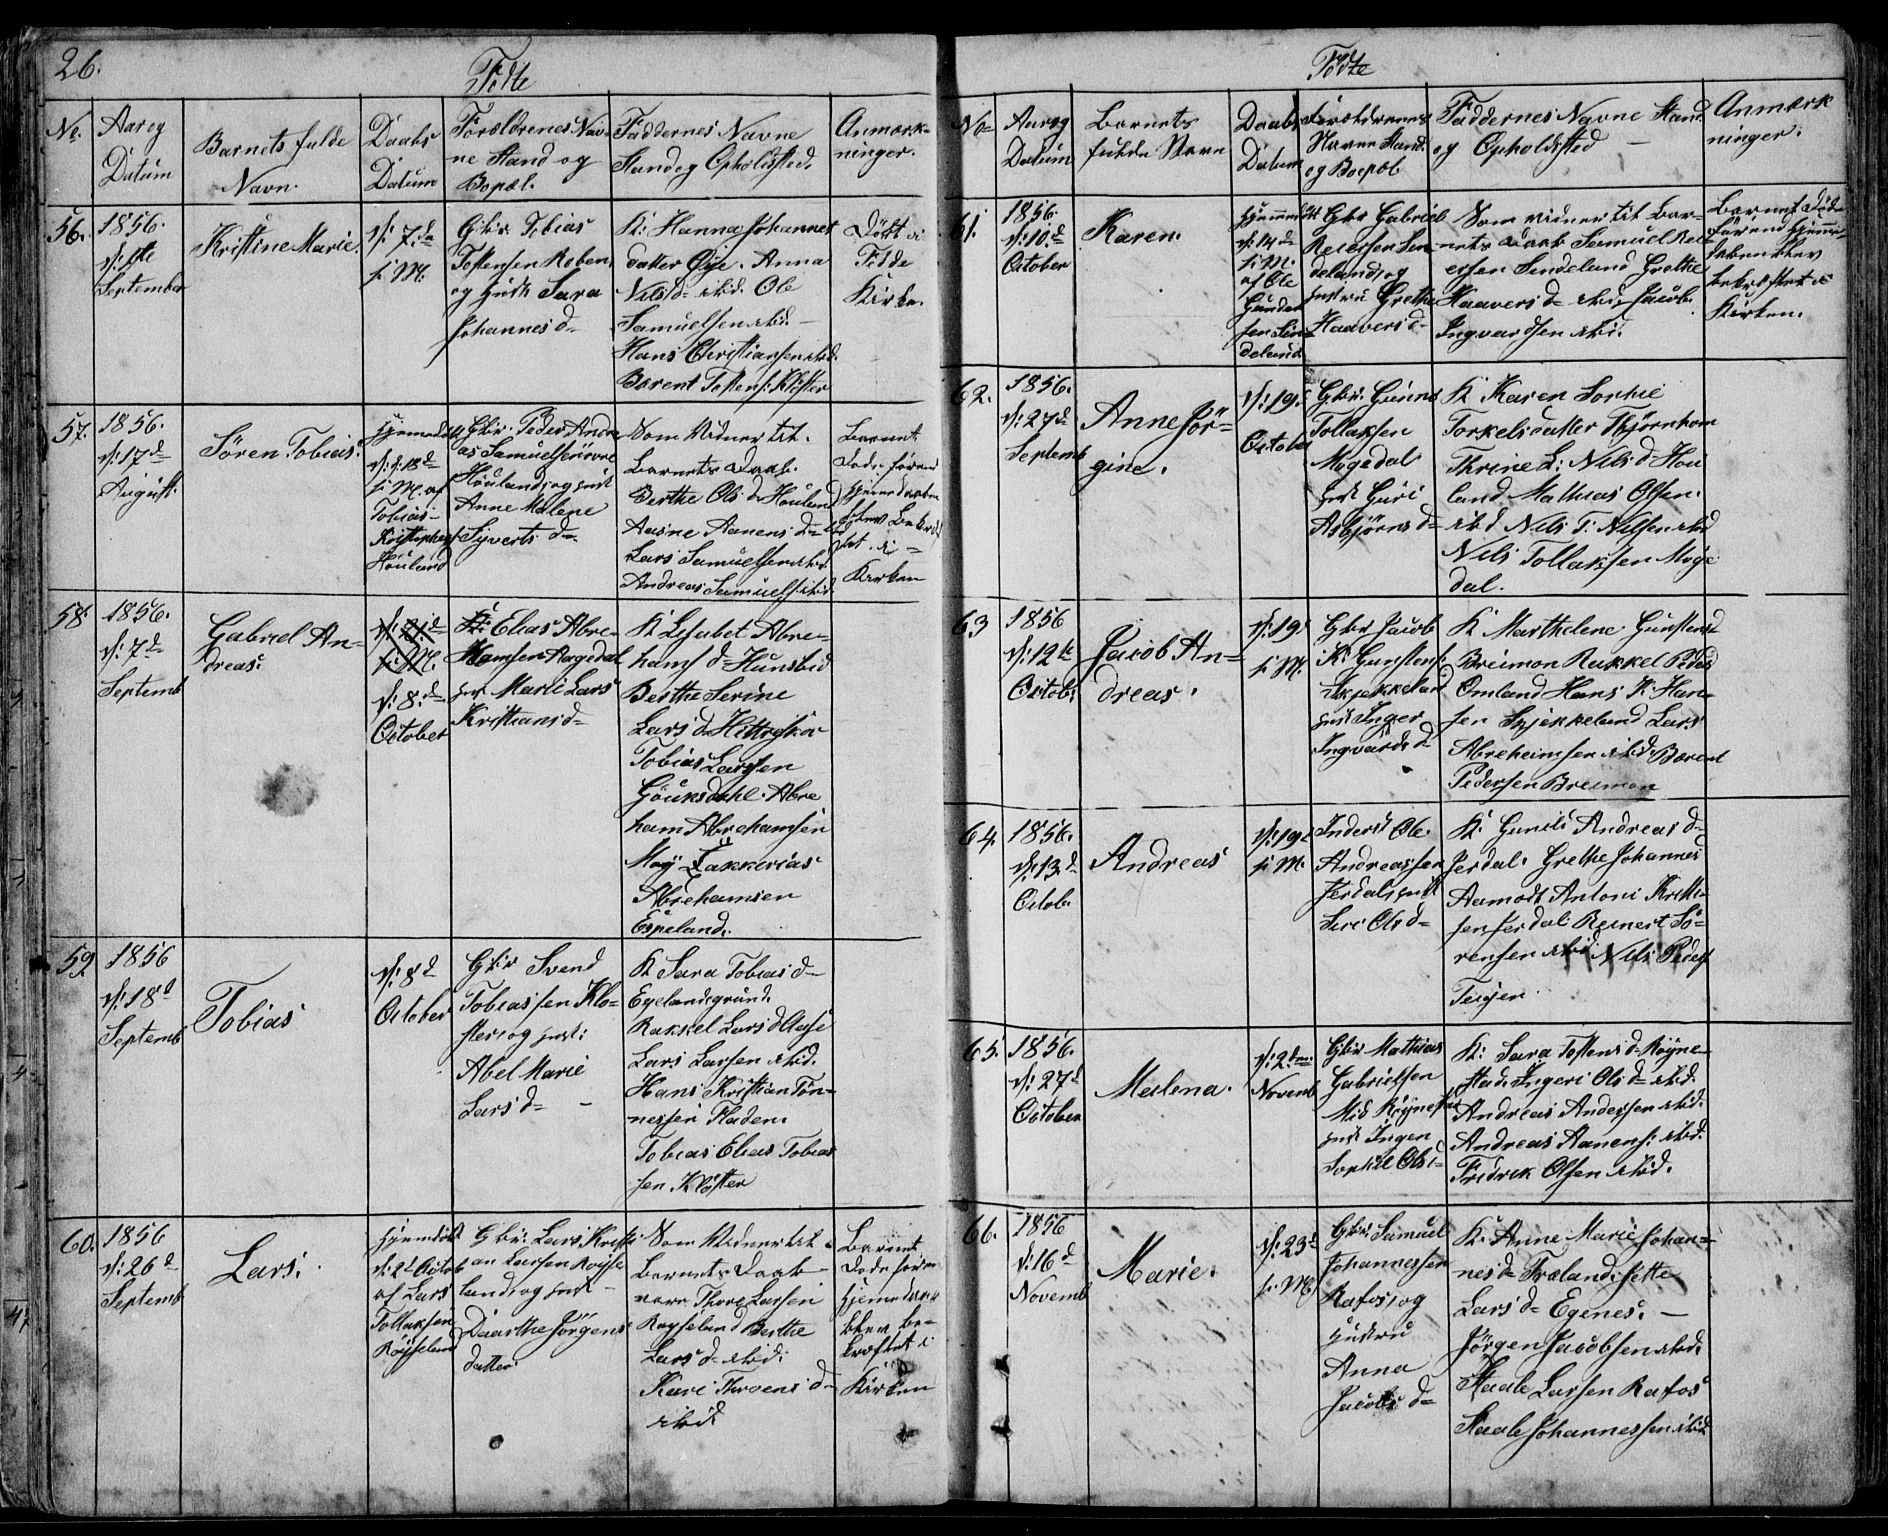 26.
Fødte
No.
Aar og
Datum
Barnets fulde
Navn.
Daabs
Datum
Forældrenes Nav-
ne Stand og
Bopæl.
Faddernes Navne
Stand og Opholdsted.
Anmærk-
ninger.
56.
1856.
September
Kristine Marie.
d: 7de
s: M.
Gbr Tobias
Tostensen
og hust Sara
Johannes d=
K: Hanna Johannes
datter Øye. Anna
Nils d= ibid. Ole
Samuelsen ibid. -
Hans Christiansen ibid.
Barent Tostens: Kloster
Døbt i
Kirke.
57.
1856.
d: 17de
August.
Søren Tobias.
Hjemmedøbt
d: 18de
s: M. af
Tobias
Houland
Gbr. Peder Andre
as Samuelsen øvre
Houland, og hust
Anne Malene
Syverts d=
Som Vidner til
Barnets Daab.
Berthe Ols d= Houland
Aasine Aanens d= ibid
Lars Samuelsen ibid
Andreas Samuels: ibid.
Barnet
Døde førend
hjemmedaaben
blev Bekræf
tet i
Kirken
58.
1856.
d: 7de
Septemb
Gabriel An-
dreas.
d: 8de
October
Elias Abre-
hamsen Aagedal
Marie Lars
Kristians d=
K Lisabet Abre-
hams d= Hunsbed
Berthe Serine
Lars d=
Tobias Larsen
Abre
ham Abrehamsen
Moi Zakkerias
Abrehamsen
Espeland.
59
1856
d: 18d
Septemb
Tobias
d: 8d
October
Gbr Svend
Tobiassen Klo-
ster, og hust:
Abel Marie
Lars d= -
K Sara Tobias d=
Egelandsgrund.
Rakkel Lars d Aase
Lars Larsen ibid.
Hans Kristian Tøn-
nessen Fladen.
Tobias Elias Tobias
sen Kloster
60.
1856
d: 26de
Septemb
Lars.
Hjemdøbt
d: 2d Octob
af Lars
Tollaksen
Røyseland
Gbr. Lars Kristi
an Larsen Røyse
land, og hust
Daarthe Jørgens
datter.
Som Vidner til
Barnets Daab
vare Thore Larsen
Røyseland Berthe
Lars d= ibid.
Kari Thorens d=
ibid.
Barnet
Døde førend
hjemedaaben
blev be-
kræftet i
Kirken
Fødte
No=
Aar og
Datum
Barnets
fulde Navn
Daabs
Datum
Forældrenes
Navne Stand.
og Boepæl
Faddernes Navne Stand
og Opholdsted -
Anmærk
ninger.
61.
1856.
d: 10de
October
Karen.
Hjemmedøbt
d: 14de
s: M.
af Ole
Gunder
sen Sin
deland
Gbr Gabriel
Reiersen Sin
deland, og
hustru Grethe
Haavers d=
Som vidner til Bar-
nets Daab Samuel Rei
ersen Sindeland Grethe
Haavers d= ibid, Jacob
Ingvardsen ibid.
Barnet Døde
førend hjemme-
daben blev
bekræftet i
Kirken.
62.
1856.
d: 27de
Septemb
Anne Jør-
gine.
d: 19.
October
Gbr. Gunnd
Tollaksen
Mygedal
hust Guri
Asbjørns d=
K Karen Sophie
Torkelsdatter Thjørnhom
Thrine L: Nils d Hou
land Mathias Olsen
ibid Nils T: Nilsen ibid
Nils Tollaksen Myge
dal.
63
1856
d: 12te
Octob:
Jacob An-
dreas.
d: 19.
s: M.
Gbr Jacob
K: Gunstens:
Skjekkeland
hust Inger
Ingvards d
K Marthelene Gunstens d
Breimon Rakkel Peders
Omland Hans K. Han-
sen Skjekkeland Lars
Abreheimsen ibid. Barent
Pedersen Breimon
64.
1856.
d: 13de
Octob.
Andreas
d: 19d
s: M.
Inderst Ole
Andreassen
Jerdal, hust
Siri Ols d=
K: Gunild Andreas d=
Jerdal. Grethe Johannes
Aamodt Antoni Kristi-
sen Jerdal Reinert Sø-
rensen ibid Nils Peders
65.
1856.
d: 27d
October
Malena.
d: 2den
Novemb
Gbr Mathias
Gabrielsen
Mid Røynestad
hust Inger
Sophie Ols d=
K: Sara Tostens d= Røyne-
stad. Ingeri Ols d= ibid.
Andreas Andersen ibid.
Andreas Aanens: ibid.
Fridrik Olsen ibid.
66.
1856
d: 16d
Novemb
Marie.
d: 23d
s: M
Gbr. Samuel
Johannessen
Rafos, og
hustru
Anna
Jacobs d=
K. Anne Marie Johan-
nes d= Træland. Jette
Lars d= Egenes. -
Jørgen Jacobsen ibid.
Staale Larsen Rafos
Staale Johannessen ibid